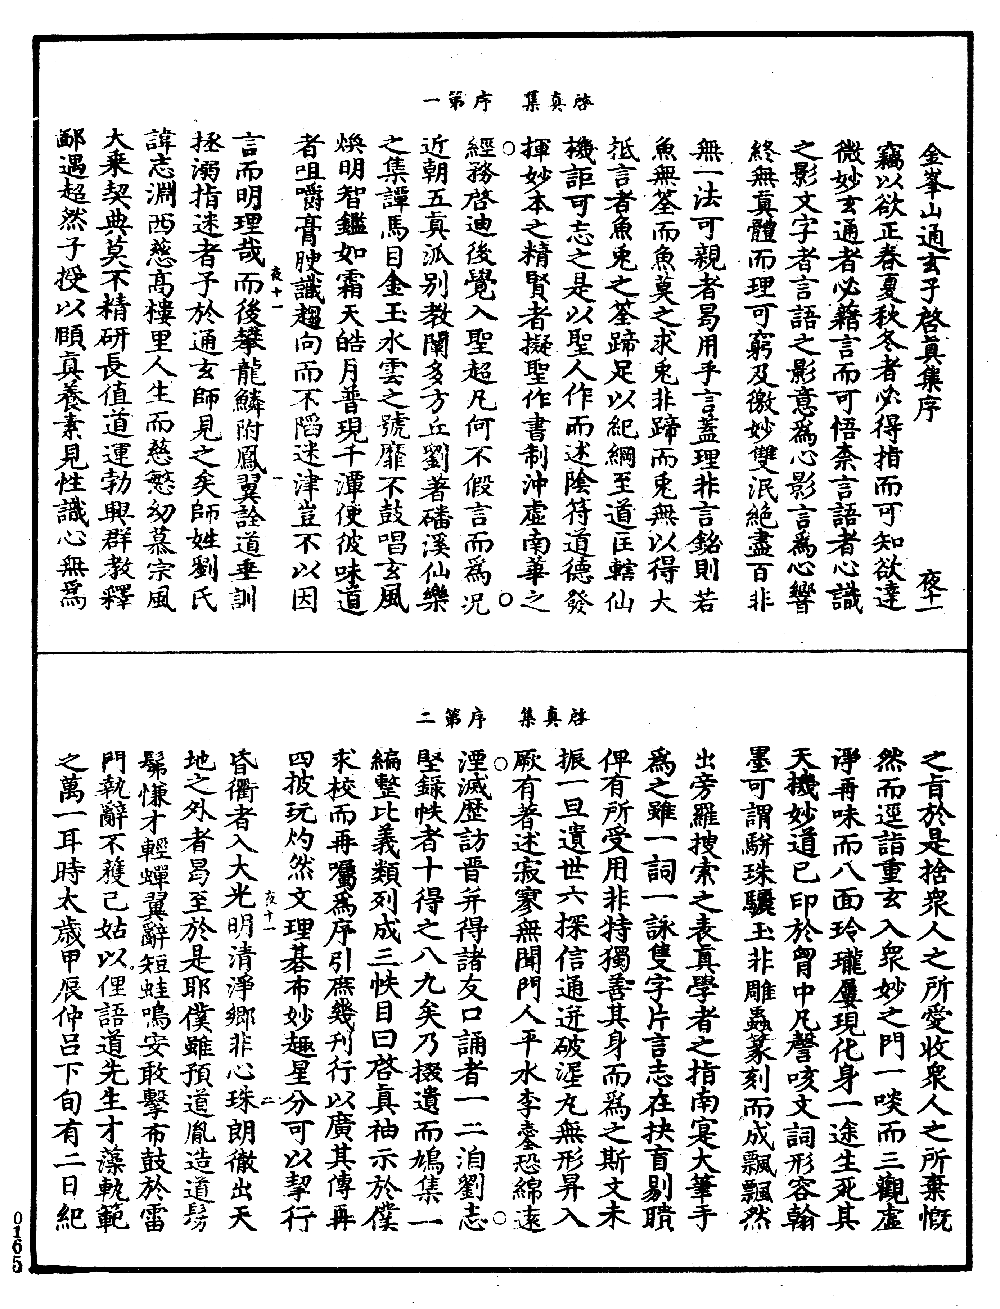 啓真集　序第一
金峯山通玄子啓真集序　夜十一
竊以欲正春夏秋冬者必得指而可知欲達
微妙玄通者必藉言而可悟柰言語者心識
之影文字者言語之影意為心影言為心響
終無真體而理可窮及徼妙雙泯絕盡百非
無一法可親者曷用乎言蓋理非言銘則若
魚無筌而魚莫之求兎非蹄而兎無以得大
抵言者魚兎之筌蹄足以紀綱至道匡轄仙
機詎可忘之是以聖人作而述陰符道德發
揮妙本之精賢者擬聖作書制沖虛南華之
經務啓迪後覺入聖超凡何不假言而為況
近朝五真派別教闡多方丘劉著磻溪仙樂
之集譚馬目金玉水雲之號靡不鼓唱玄風
煥明智鑑如霜天皓月普現千潭使彼味道
者咀嚼膏腴讖趨向而不滔迷津豈不以因
夜十一　一
言而明理哉而後攀龍鱗附鳳翼詮道垂訓
拯溺指迷者予於通玄師見之矣師姓劉氏
諱志淵西慈高樓里人生而慈愍幼慕宗風
大乘契典莫不精研長值道運勃興群教釋
鄙遇超然子授以頤真養素見性識心無為
啓真集　序第二
之旨於是捨衆人之所愛收衆人之所棄慨
然而逕詣重玄入衆妙之門一啖而三觀虛
淨再味而八面玲瓏屢現化身一途生死其
天機妙道已印於胷中凡謦咳文詞形容翰
墨可謂騈珠驪玉非雕蟲篆刻而成飄飄然
出旁羅搜索之表真學者之指南寔大筆手
為之雖一詞一詠隻字片言志在抉盲剔聵
俾有所受用非特獨善其身而為之斯文未
振一旦遺世六探信通迸破涅丸無形昇入
厥有著述寂寥無聞門人平水李臺恐綿遠
湮滅歴訪晉并得諸友口誦者一二洎劉志
堅録帙者十得之八九矣乃掇遺而鳩集一
編整比義類列成三帙目曰啓真袖示於僕
求校而再囑為序引庶幾刊行以廣其傳再
四披玩灼然文理碁布妙趣星分可以挈行
夜十一　二
昏衢者入大光明清淨鄉非心珠朗徹出天
地之外者曷至於是耶僕雖預道胤造道髣
髴慊才輕蟬翼辭短蛙鳴安敢擊布鼓於雷
門執辭不穫已姑以俚語道先生才藻軌範
之萬一耳時太歲甲辰仲呂下旬有二日紀
0165